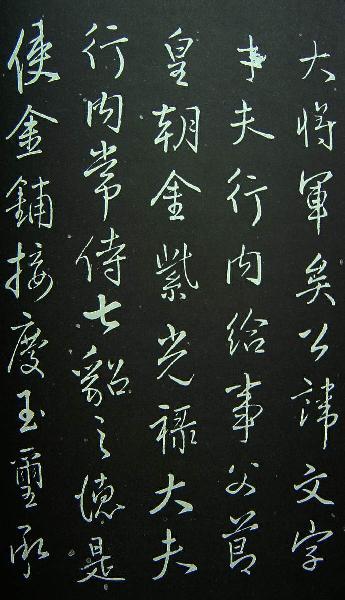 大將軍矣公諱文字
夫行內給事父節
皇朝金紫光祿大夫
行內常侍七貂之德是
使金鋪接慶玉璽承